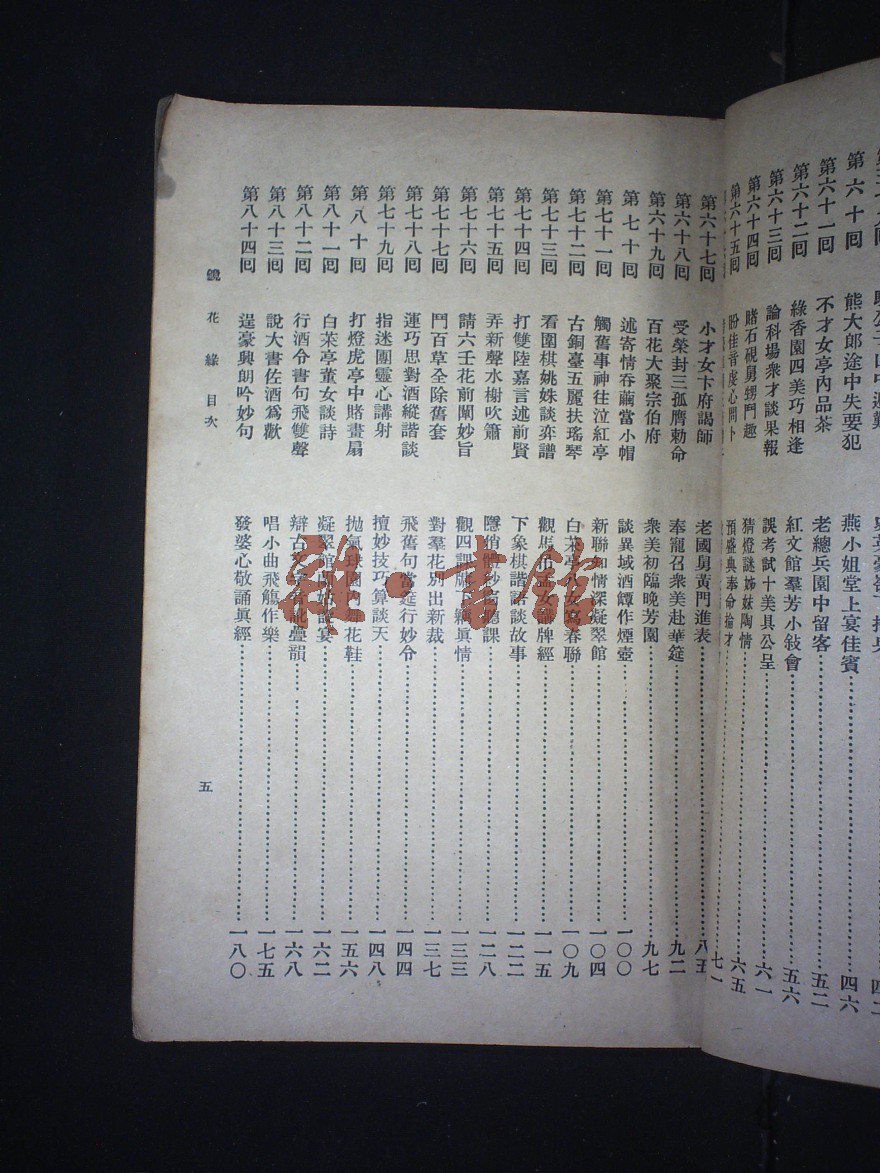 第六十回 熊大郎途中失要犯 燕小姐堂上宴佳賓 四六
第六十一回 不才女亭內品茶 老總兵園中留客 五二
第六十二回 綠香園四美巧相逢 紅文館羣芳小敍會 五六
第六十三回 論科場衆才談果報 誤考試十美具公呈 六一
第六十四回 賭石硯舅甥鬥趣 猜燈謎姊妹陶情 六五
第六十五回 盼佳音虔心問卜 預盛典奉命掄才 七一
第六十七回 小才女卞府謁師 老國舅黃門進表 八五
第六十八回 受榮封三孤膺勅命 奉寵召衆美赴華筵 九二
第六十九回 百花大聚宗伯府 衆美初臨晚芳園 九七
第七十回 述奇情吞繭當小帽 談異域酒罈作煙壺 一〇〇
第七十一回 觸舊事神往泣紅亭 新聯和情深凝翠館 一〇四
第七十二回 古銅臺五麗扶瑤琴 白茶亭八女寫春聯 一〇九
第七十三回 看圍棋姚姝談弈譜 觀馬吊孟女講牌經 一一五
第七十四回 打雙陸嘉言述前賢 下象棋諧語談故事 一二二
第七十五回 弄新聲水榭吹簫 隱俏體紗窗聽課 一二八
第七十六回 講六壬花前闡妙旨 觀四課牖下竊眞情 一三三
第七十七回 鬥百草全除舊套 對羣花別出新裁 一三七
第七十八回 運巧思對酒縱諧談 飛舊句當筵行妙令 一四四
第七十九回 指迷團靈心講射 擅妙技巧算談天 一四八
第八十回 打燈虎亭中賭畫扇 拋氣球園內舞花鞋 一五六
第八十一回 白茶亭董女談詩 凝翠館 宴 一六二
第八十二回 行酒令書句飛雙聲 辯古文字音訛疊韻 一六八
第八十三回 說大書佐酒爲歡 唱小曲飛觴作樂 一七五
第八十四回 逞豪興朗吟妙句 發婆心敬誦眞經 一八〇
鏡花緣 目次
五
雜·書館